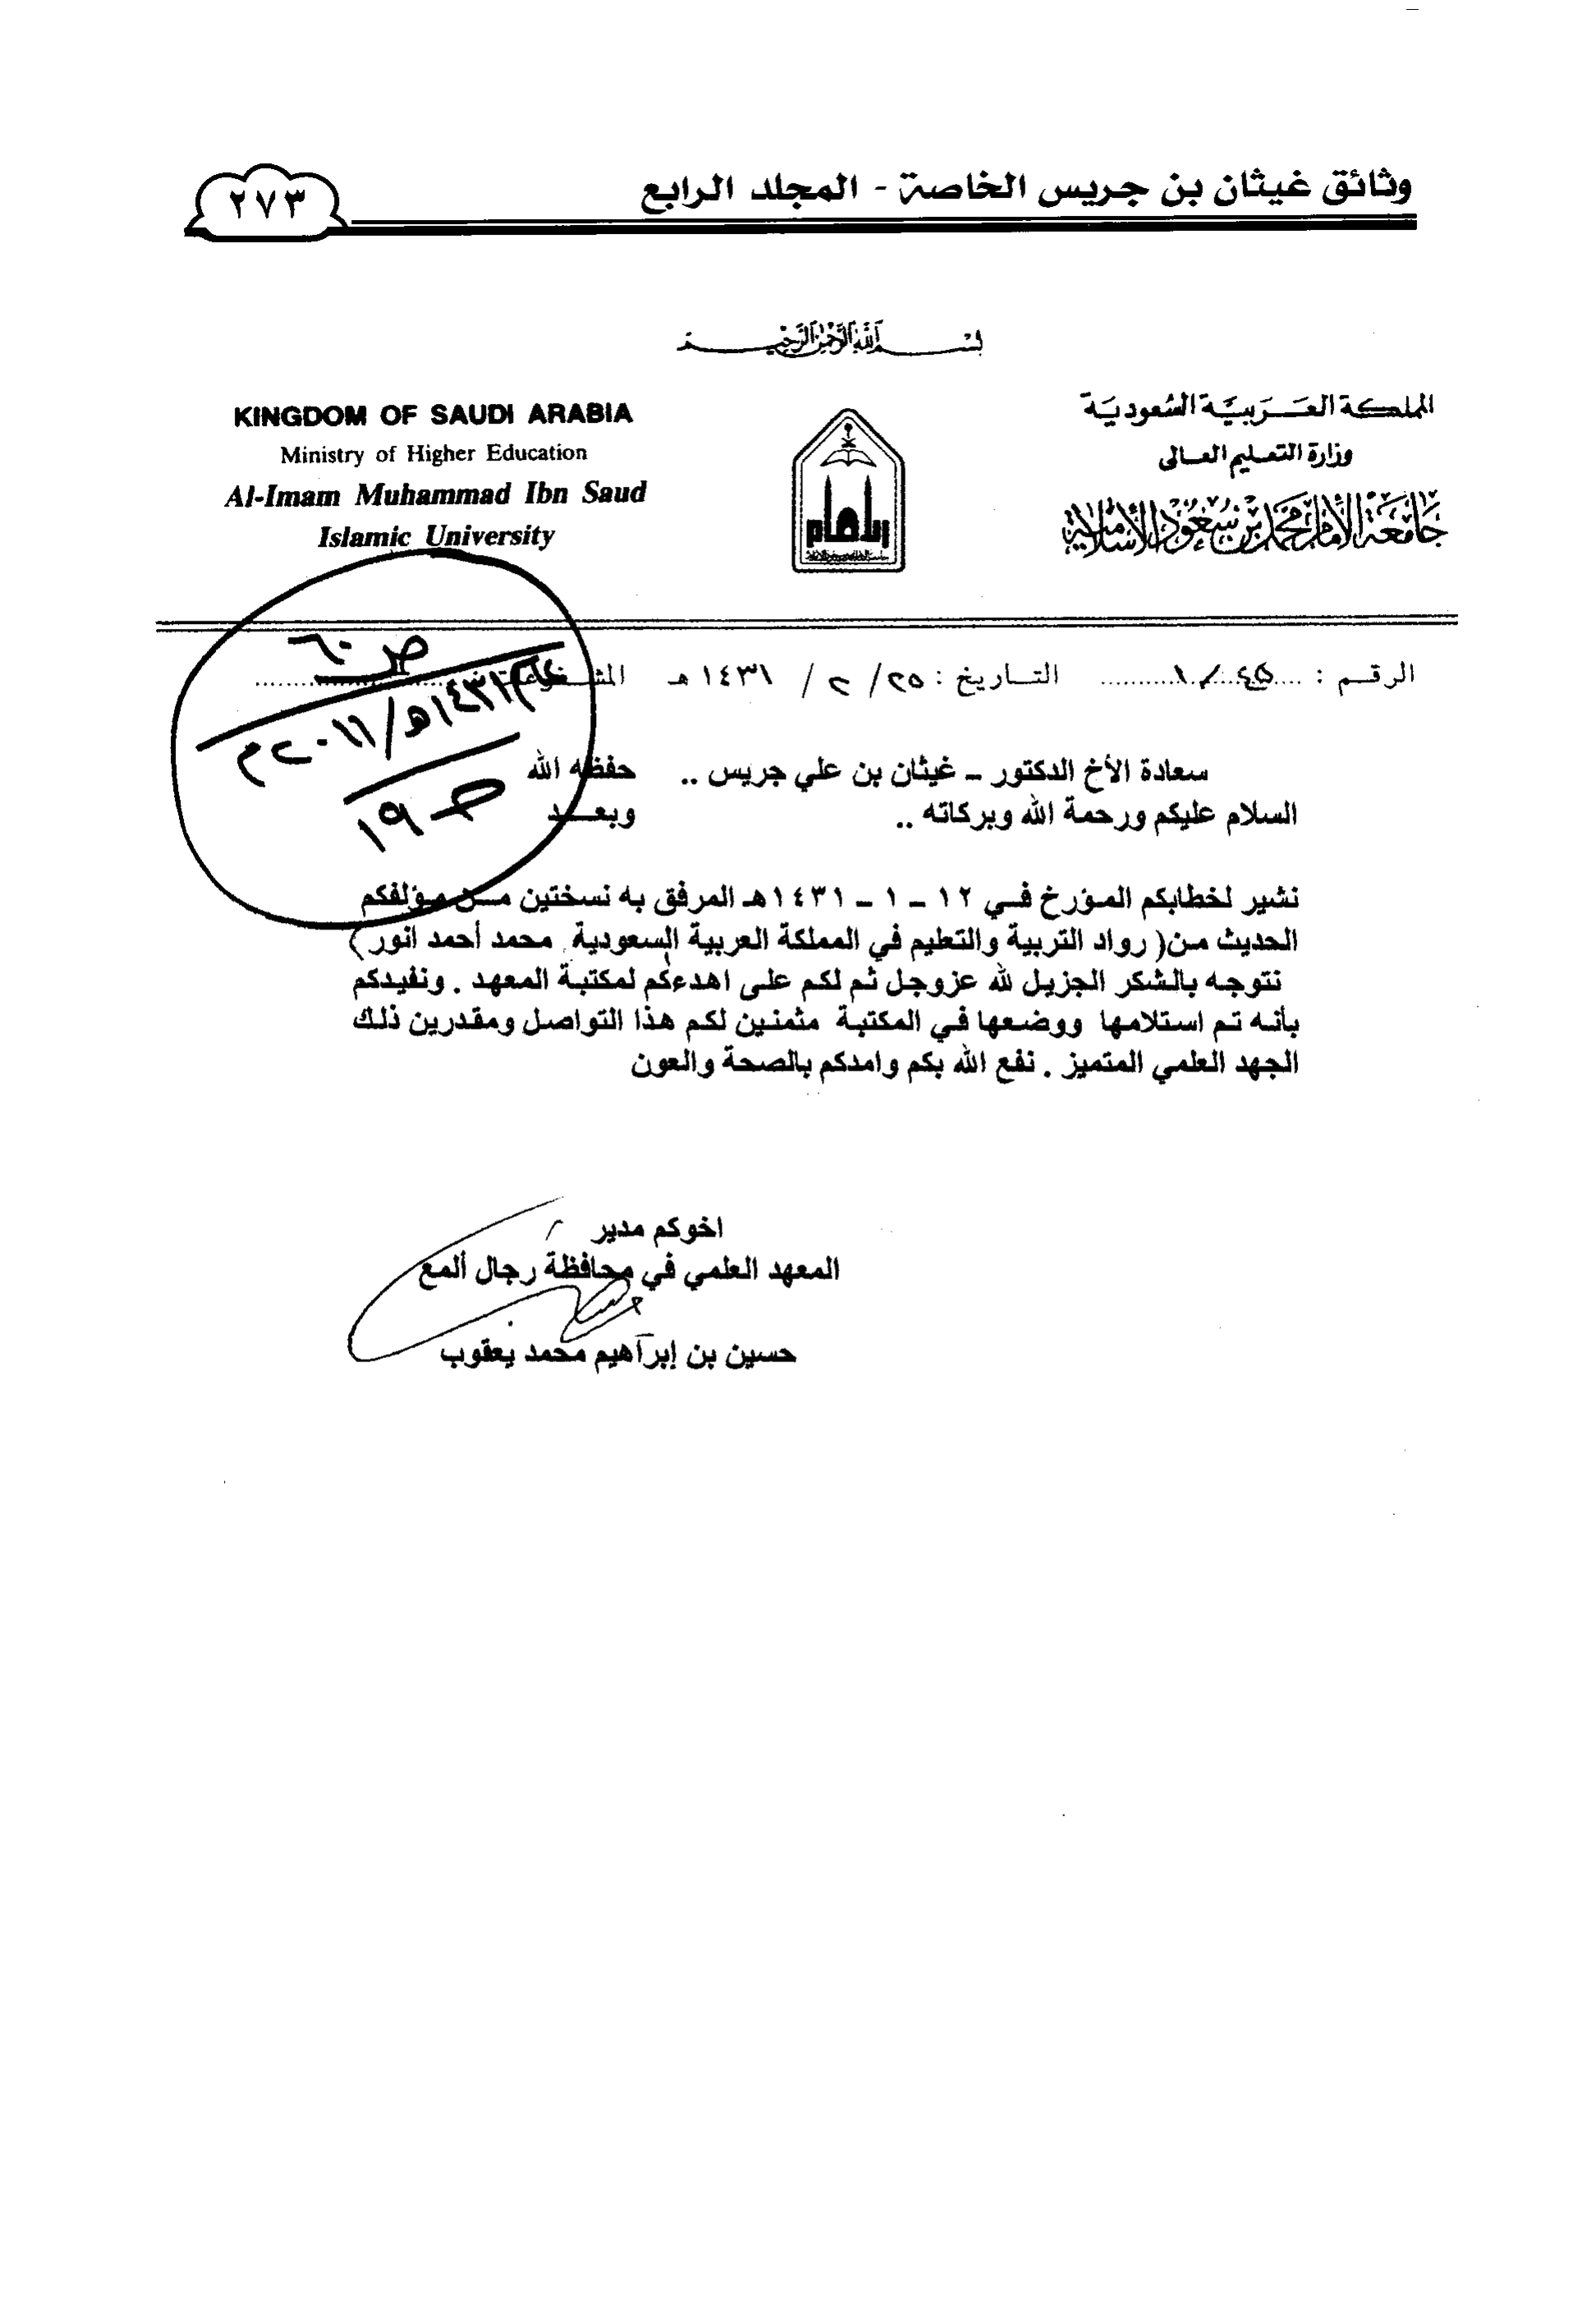 وثائق غيثان بن جريس الخاصة - المجلد الرابع
٢٧٣
بسم الله الرحمن الرحيم
المملكة العربية السعودية
وزارة التعليم العالي
جامعة الإمام محمد بن سعود الإسلامية
KINGDOM OF SAUDI ARABIA
Ministry of Higher Education
Al-Imam Muhammad Ibn Saud
Islamic University
الإمام
الرقم : ١/٤٥ التاريخ : ٢٥/ ٢ / ١٤٣١ هـ
ص ٦٠
عام ١٤٣١هـ/٢٠١١م
ص ١٩
سعادة الأخ الدكتور – غيثان بن علي جريس .. حفظه الله
السلام عليكم ورحمة الله وبركاته .. وبعد
نشير لخطابكم المؤرخ في ١٢ – ١ – ١٤٣١هـ المرفق به نسختين من مؤلفكم
الحديث من( رواد التربية والتعليم في المملكة العربية السعودية محمد أحمد أنور)
نتوجه بالشكر الجزيل لله عزوجل ثم لكم على اهدءكم لمكتبة المعهد . ونفيدكم
بأنه تم استلامها ووضعها في المكتبة مثمنين لكم هذا التواصل ومقدرين ذلك
الجهد العلمي المتميز . نفع الله بكم وامدكم بالصحة والعون
اخوكم مدير
المعهد العلمي في محافظة رجال ألمع
حسين بن إبراهيم محمد يعقوب